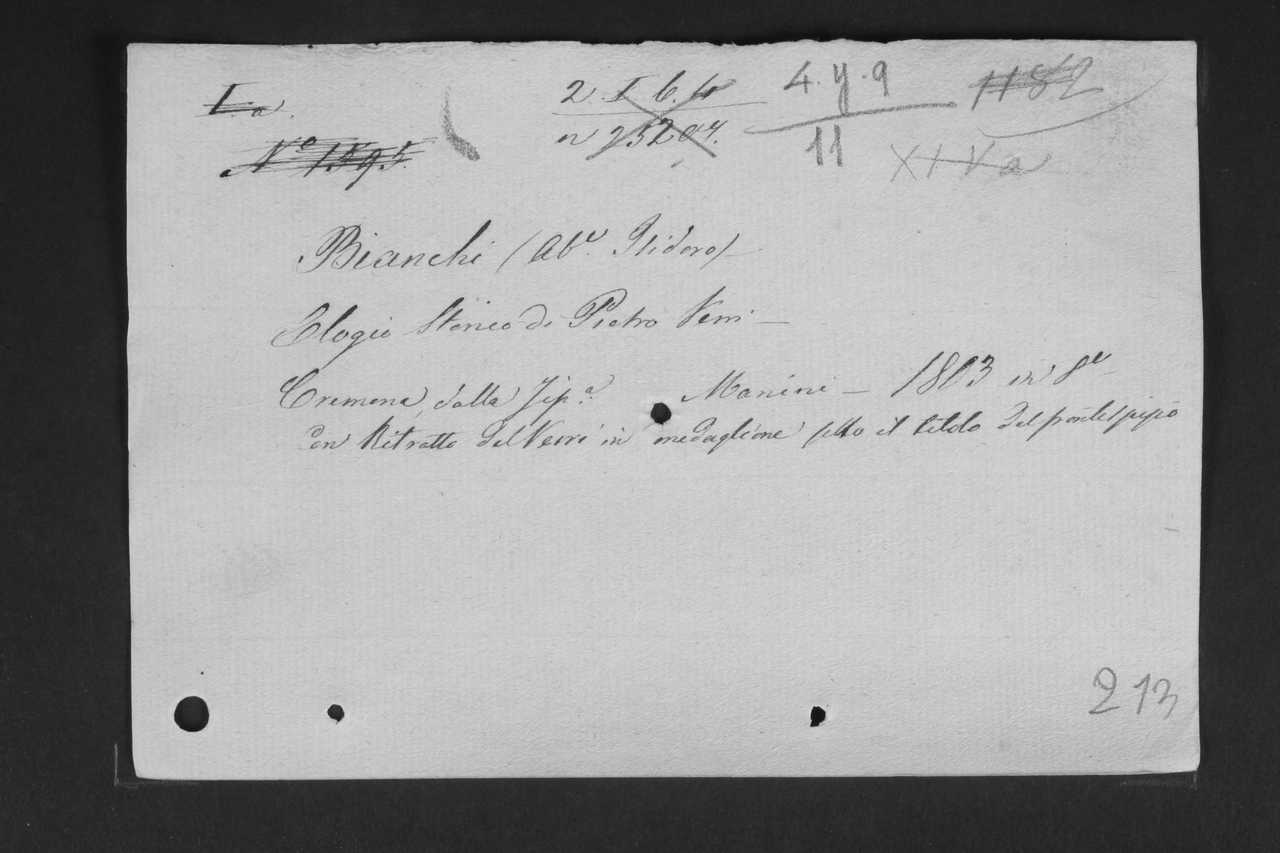 I a.
2. I. 6. 4
4. y. 9
1182
N.º 1595.
n 23204.
11
XIVa
Bianchi (Ab.e Isidoro)
Elogio Storico di Pietro Verri —
Cremona, dalla Tip.a Manini — 1803 in 8º
con Ritratto del Verri in medaglione sotto il titolo del frontespizio
213